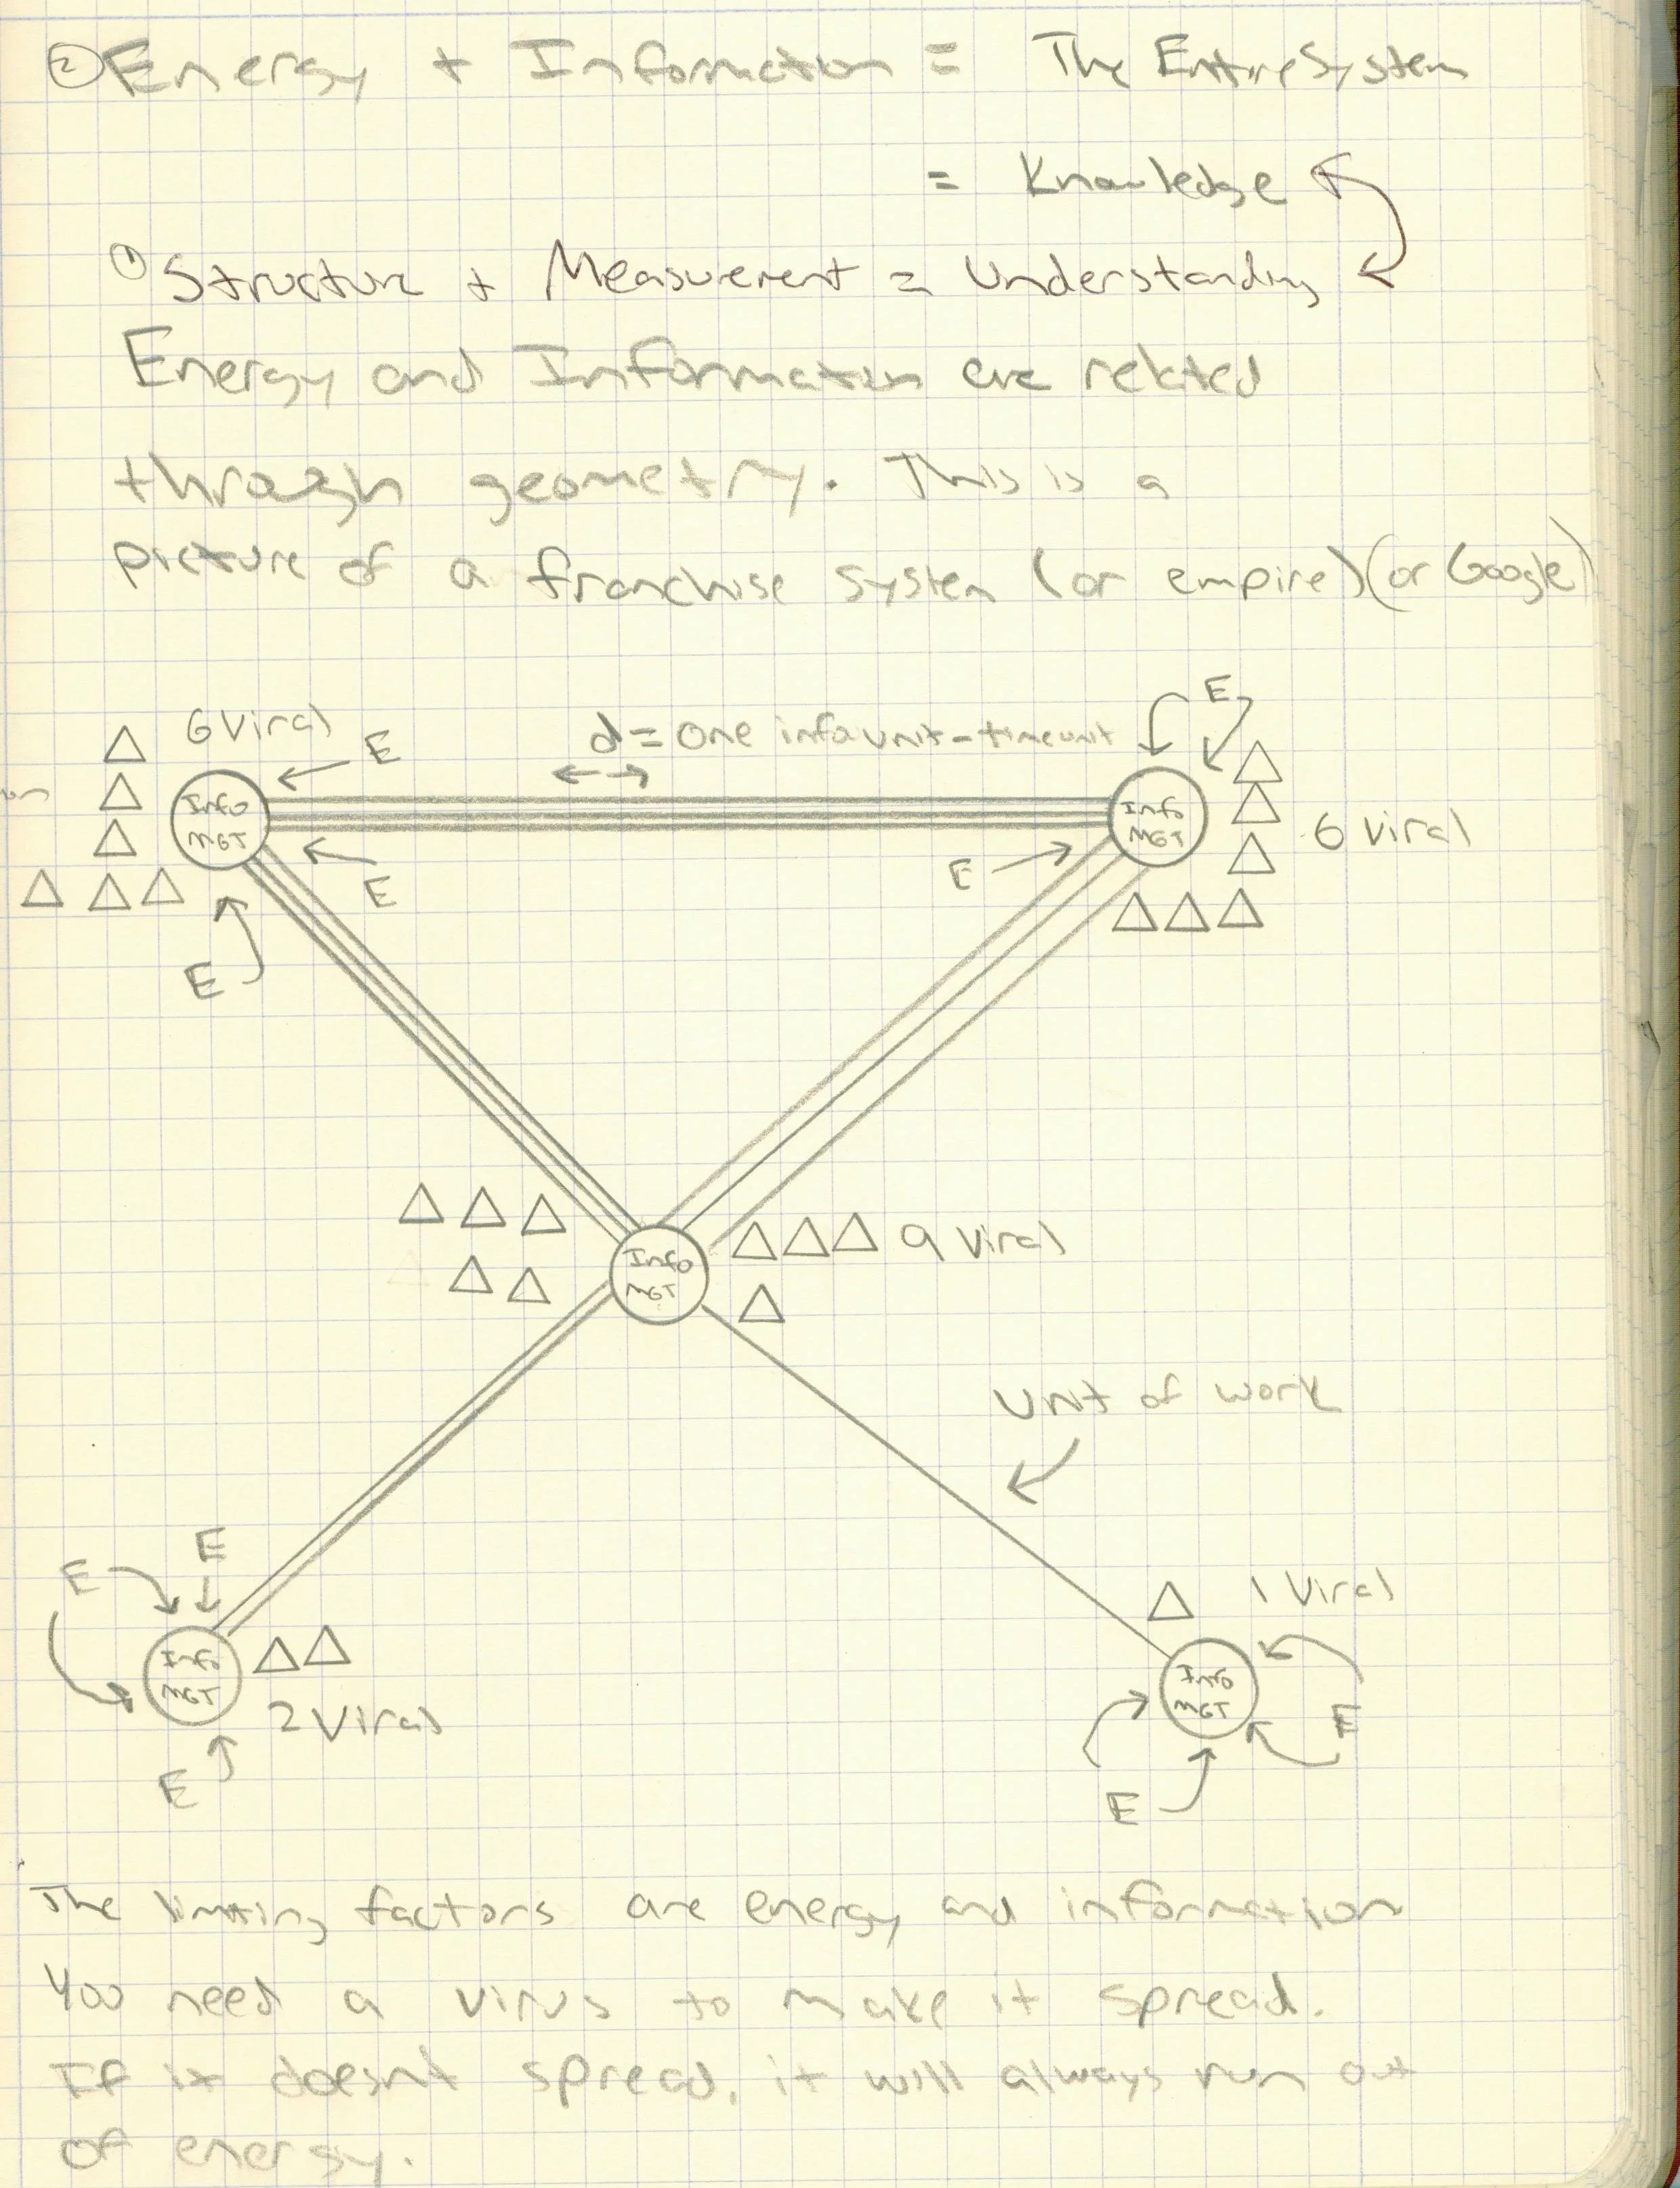 ② Energy + Information = The Entire System
= Knowledge
① Structure + Measurement = Understanding
Energy and Information are related
through geometry. This is a
picture of a franchise system (or empire) (or Google)
6 Viral
E
d = one info unit - time unit
E
Info
MGT
Info
MGT
6 Viral
E
E
E
Info
MGT
9 Viral
Unit of work
E
E
1 Viral
Info
MGT
2 Viral
Info
MGT
E
E
E
The limiting factors are energy and information
You need a virus to make it spread.
If it doesnt spread, it will always run out
of energy.